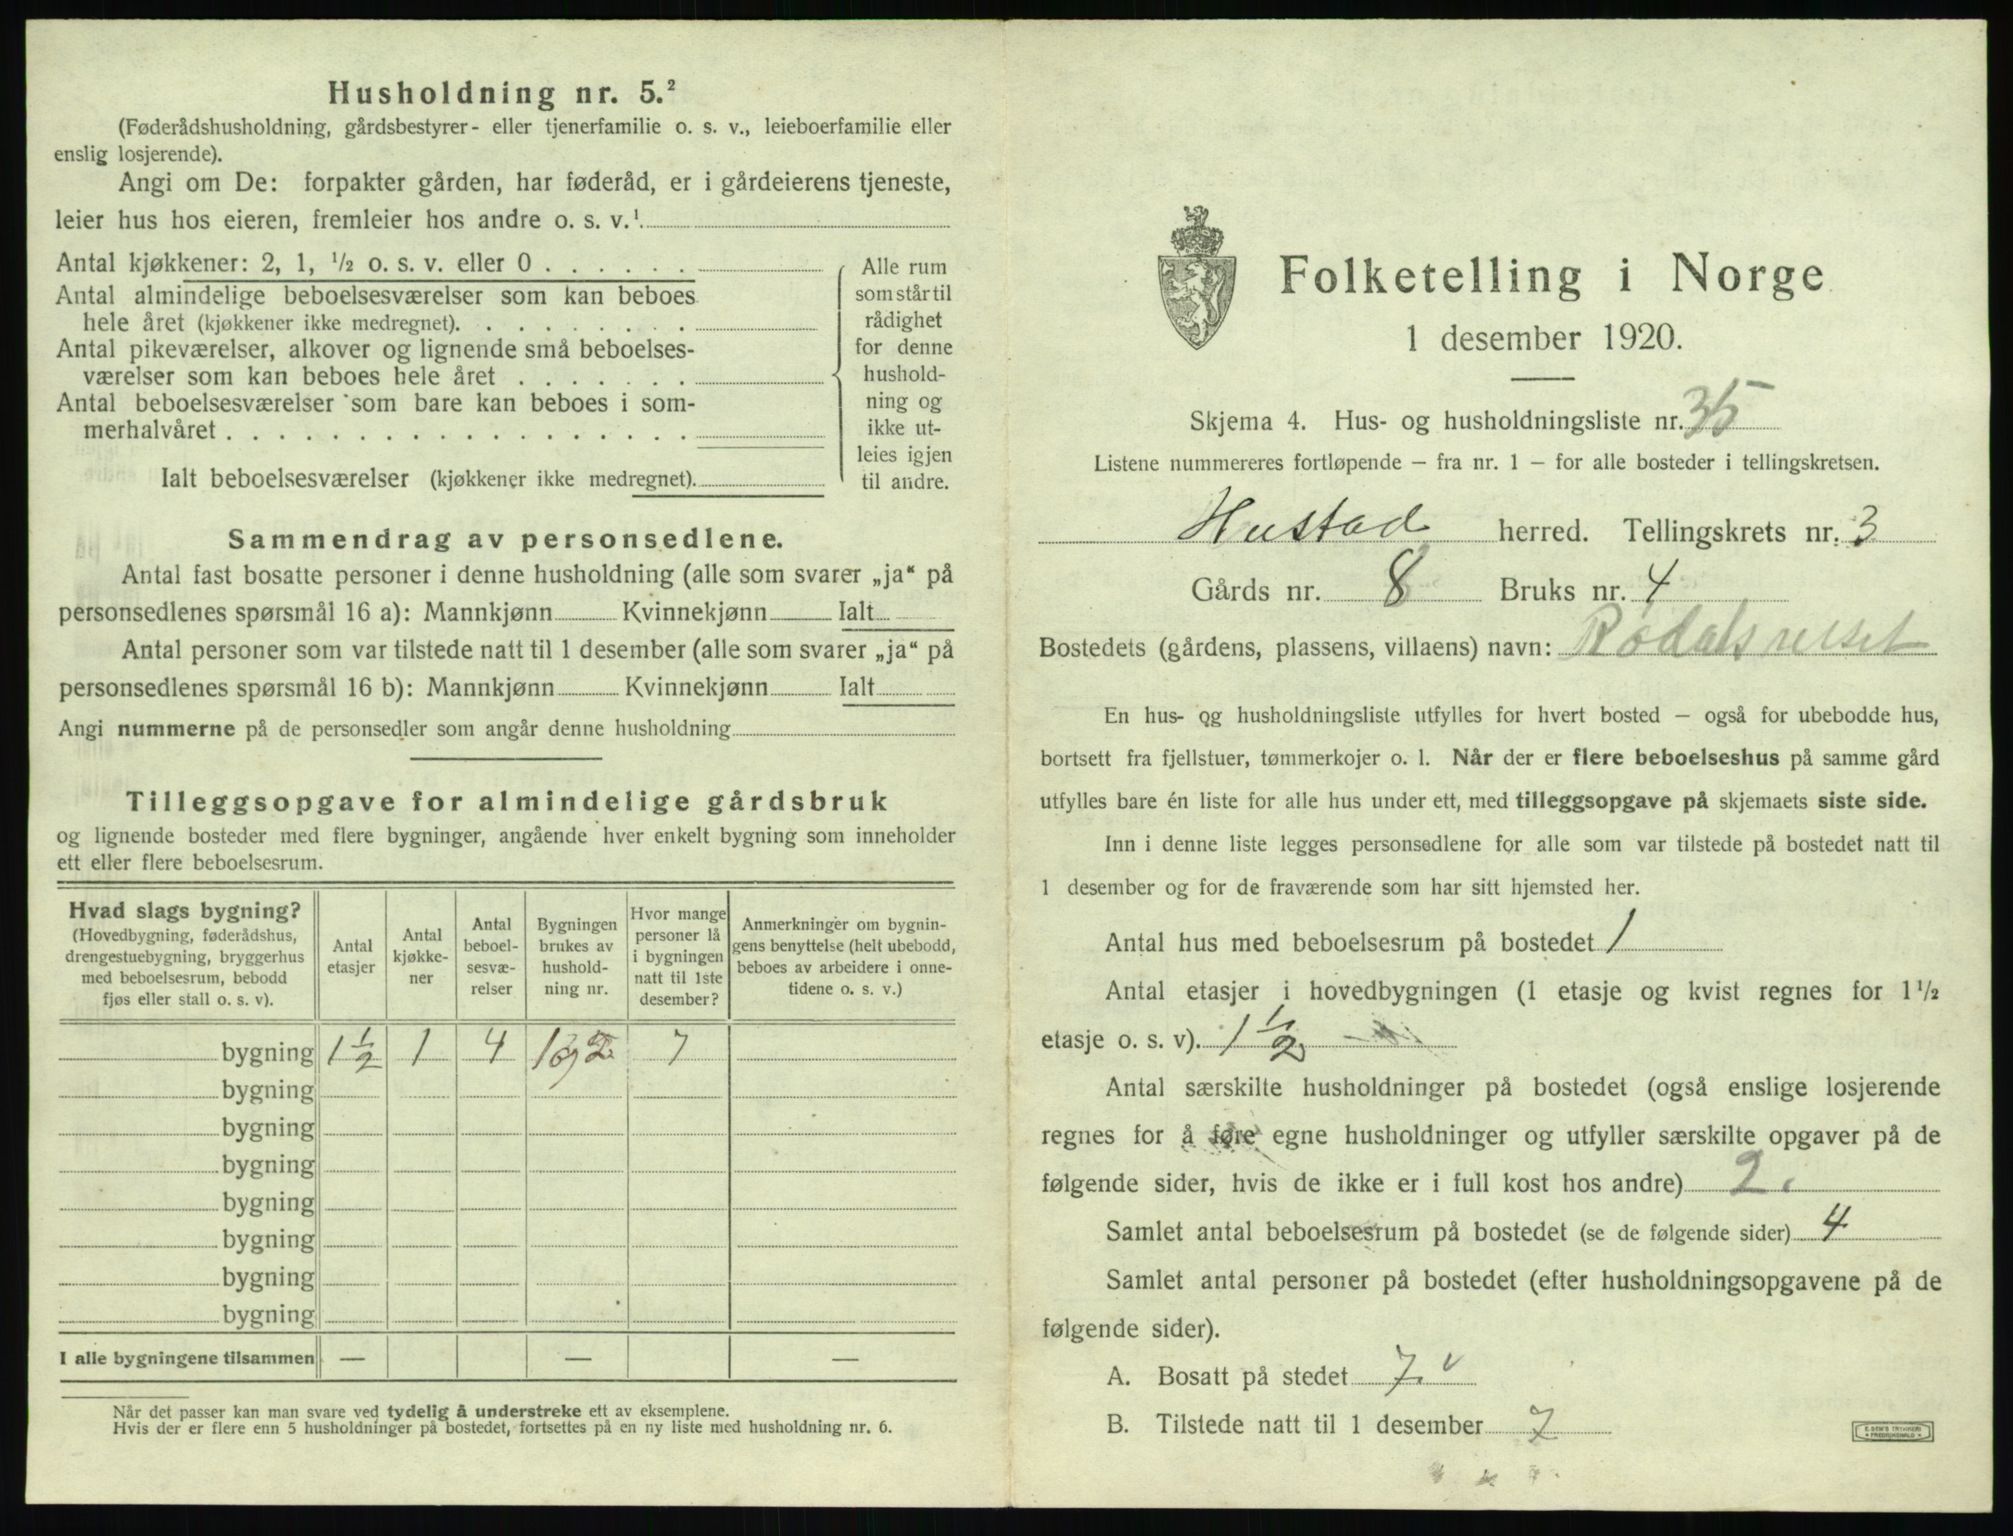 Husholdning nr. 5.²
(Føderådshusholdning, gårdsbestyrer- eller tjenerfamilie o. s. v., leieboerfamilie eller
enslig losjerende).
Angi om De: forpakter gården, har føderåd, er i gårdeierens tjeneste,
leier hus hos eieren, fremleier hos andre o. s. v.¹
Antal kjøkkener: 2, 1, ½ o. s. v. eller 0
Antal almindelige beboelsesværelser som kan beboes
hele året (kjøkkener ikke medregnet).
Antal pikeværelser, alkover og lignende små beboelses-
værelser som kan beboes hele året
Antal beboelsesværelser som bare kan beboes i som-
merhalvåret
Ialt beboelsesværelser (kjøkkener ikke medregnet).
Alle rum
som står til
rådighet
for denne
hushold-
ning og
ikke ut-
leies igjen
til andre.
Sammendrag av personsedlene.
Antal fast bosatte personer i denne husholdning (alle som svarer „ja“ på
personsedlenes spørsmål 16 a): Mannkjønn Kvinnekjønn Ialt
Antal personer som var tilstede natt til 1 desember (alle som svarer „ja“ på
personsedlenes spørsmål 16 b): Mannkjønn Kvinnekjønn Ialt
Angi nummerne på de personsedler som angår denne husholdning
Tilleggsopgave for almindelige gårdsbruk
og lignende bosteder med flere bygninger, angående hver enkelt bygning som inneholder
ett eller flere beboelsesrum.
Hvad slags bygning?
(Hovedbygning, føderådshus,
drengestuebygning, bryggerhus
med beboelsesrum, bebodd
fjøs eller stall o. s. v).
Antal
etasjer
Antal
kjøkke-
ner
Antal
beboel-
sesvæ-
relser
Bygningen
brukes av
hushold-
ning nr.
Hvor mange
personer lå
i bygningen
natt til 1ste
desember?
Anmerkninger om bygnin-
gens benyttelse (helt ubebodd,
beboes av arbeidere i onne-
tidene o. s. v.)
bygning 1½ 1 4 1 og 2. 7
bygning
bygning
bygning
bygning
bygning
bygning
bygning
I alle bygningene tilsammen — — —
Når det passer kan man svare ved tydelig å understreke ett av eksemplene.
Hvis der er flere enn 5 husholdninger på bostedet, fortsettes på en ny liste med husholdning nr. 6.
Folketelling i Norge
1 desember 1920.
Skjema 4. Hus- og husholdningsliste nr. 35
Listene nummereres fortløpende – fra nr. 1 – for alle bosteder i tellingskretsen.
Hustad herred. Tellingskrets nr. 3
Gårds nr. 8 Bruks nr. 4
Bostedets (gårdens, plassens, villaens) navn:
En hus- og husholdningsliste utfylles for hvert bosted – også for ubebodde hus,
bortsett fra fjellstuer, tømmerkojer o. l. Når der er flere beboelseshus på samme gård
utfylles bare én liste for alle hus under ett, med tilleggsopgave på skjemaets siste side.
Inn i denne liste legges personsedlene for alle som var tilstede på bostedet natt til
1 desember og for de fraværende som har sitt hjemsted her.
Antal hus med beboelsesrum på bostedet 1
Antal etasjer i hovedbygningen (1 etasje og kvist regnes for 1½
etasje o. s. v). 1½
Antal særskilte husholdninger på bostedet (også enslige losjerende
regnes for å føre egne husholdninger og utfyller særskilte opgaver på de
følgende sider, hvis de ikke er i full kost hos andre) 2.
Samlet antal beboelsesrum på bostedet (se de følgende sider) 4
Samlet antal personer på bostedet (efter husholdningsopgavene på de
følgende sider).
A. Bosatt på stedet 7.
B. Tilstede natt til 1 desember 7